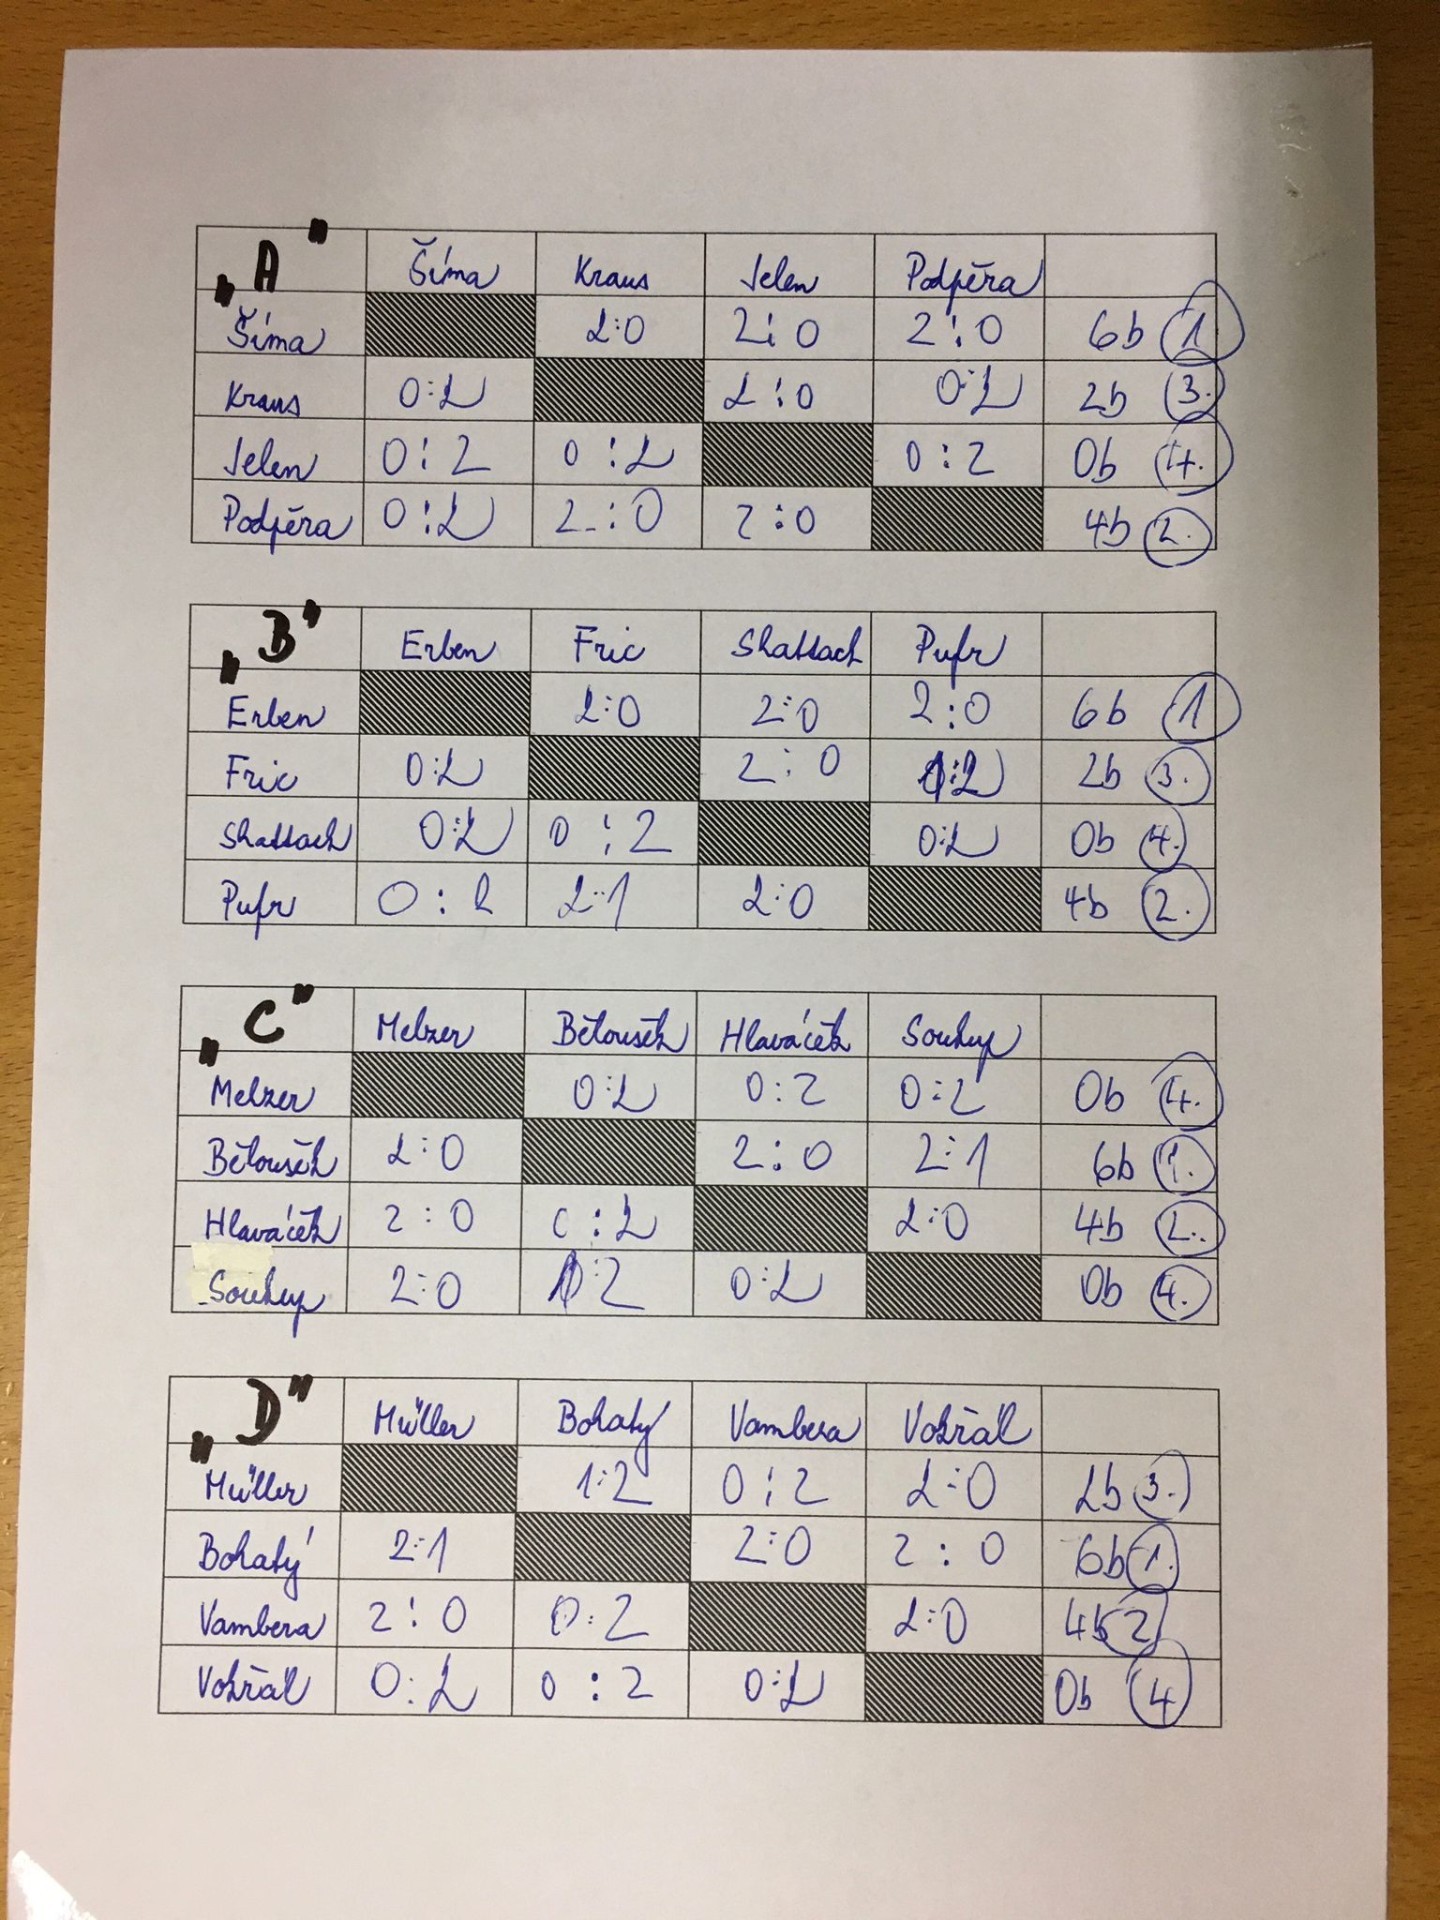 „A" Šíma Kraus Jelen Podpěra
Šíma 2:0 2:0 2:0 6b 1
Kraus 0:2 2:0 0:2 2b 3.
Jelen 0:2 0:2 0:2 0b 4.
Podpěra 0:2 2:0 2:0 4b 2.
„B" Erben Fric Shattach Pufr
Erben 2:0 2:0 2:0 6b 1
Fric 0:2 2:0 1:2 2b 3.
Shattach 0:2 0:2 0:2 0b 4.
Pufr 0:2 2:1 2:0 4b 2.
„C" Melzer Běloušek Hlaváček Soukup
Melzer 0:2 0:2 0:2 0b 4.
Běloušek 2:0 2:0 2:1 6b 1.
Hlaváček 2:0 0:2 2:0 4b 2.
Soukup 2:0 1:2 0:2 0b 4.
„D" Müller Bohatý Vambera Vokřál
Müller 1:2 0:2 2:0 2b 3.
Bohatý 2:1 2:0 2:0 6b 1.
Vambera 2:0 0:2 2:0 4b 2
Vokřál 0:2 0:2 0:2 0b 4